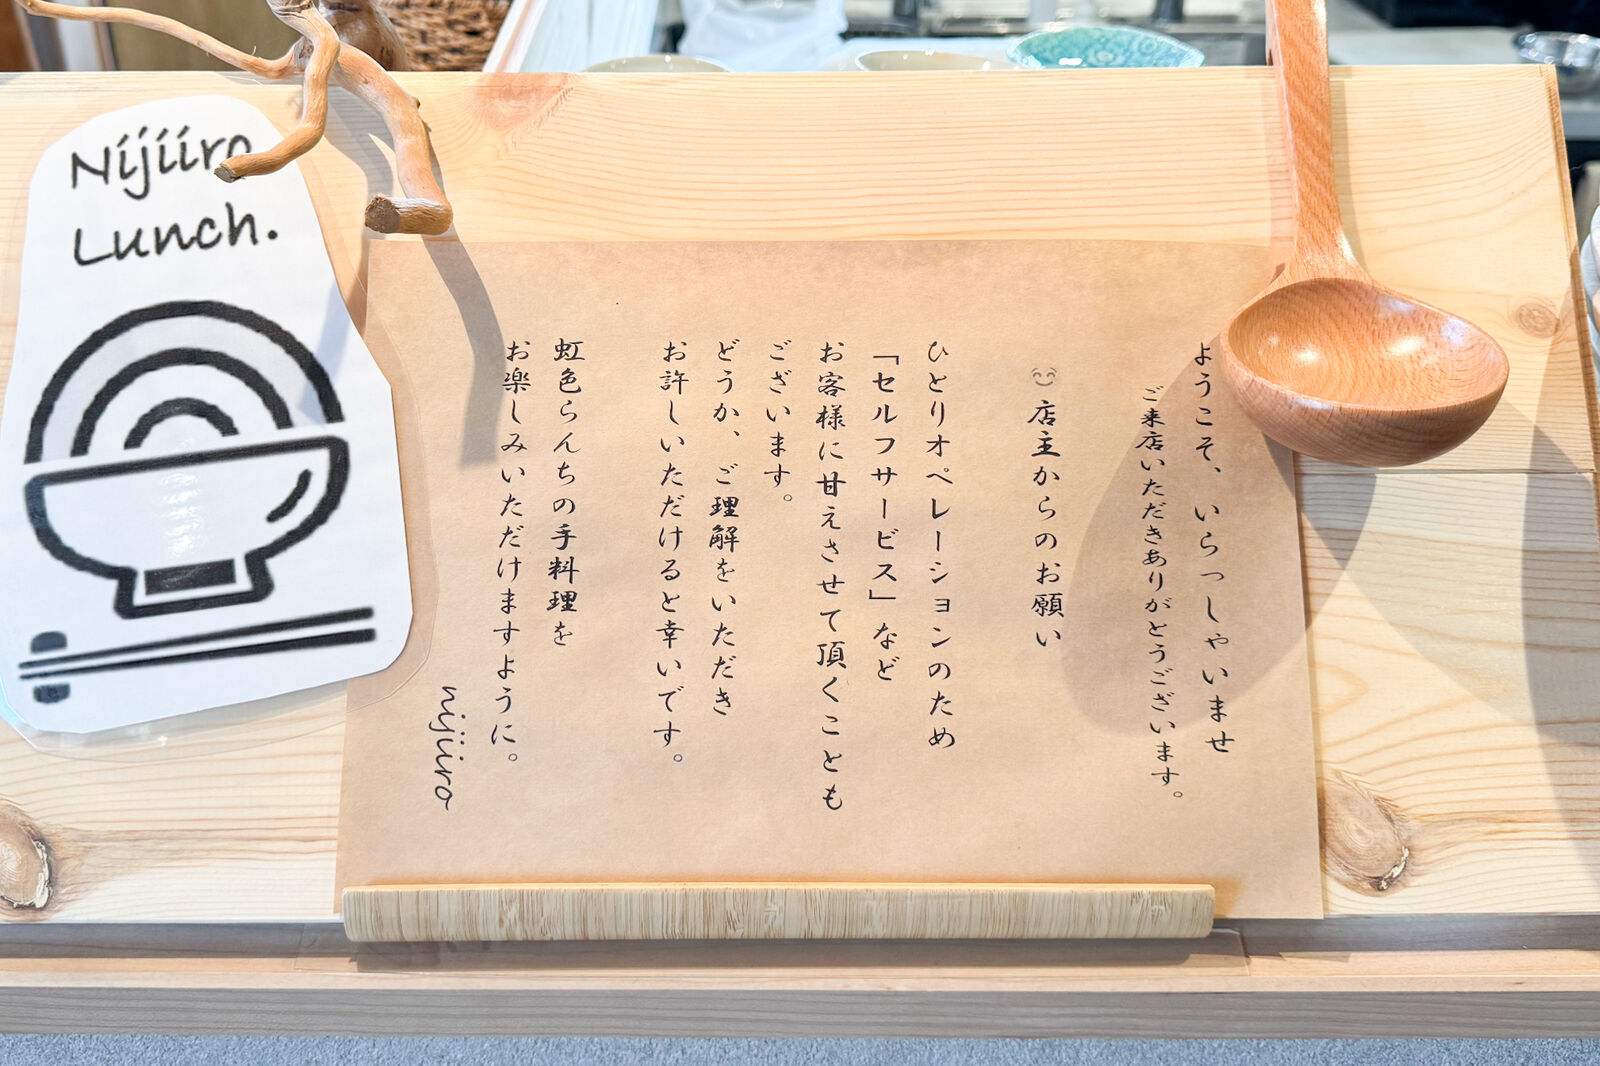 Nijiiro
Lunch.
ようこそ、いらっしゃいませ
ご来店いただきありがとうございます。
店主からのお願い
ひとりオペレーションのため
「セルフサービス」など
お客様に甘えさせて頂くことも
ございます。
どうか、ご理解をいただき
お許しいただけると幸いです。
虹色らんちの手料理を
お楽しみいただけますように。
nijiiro